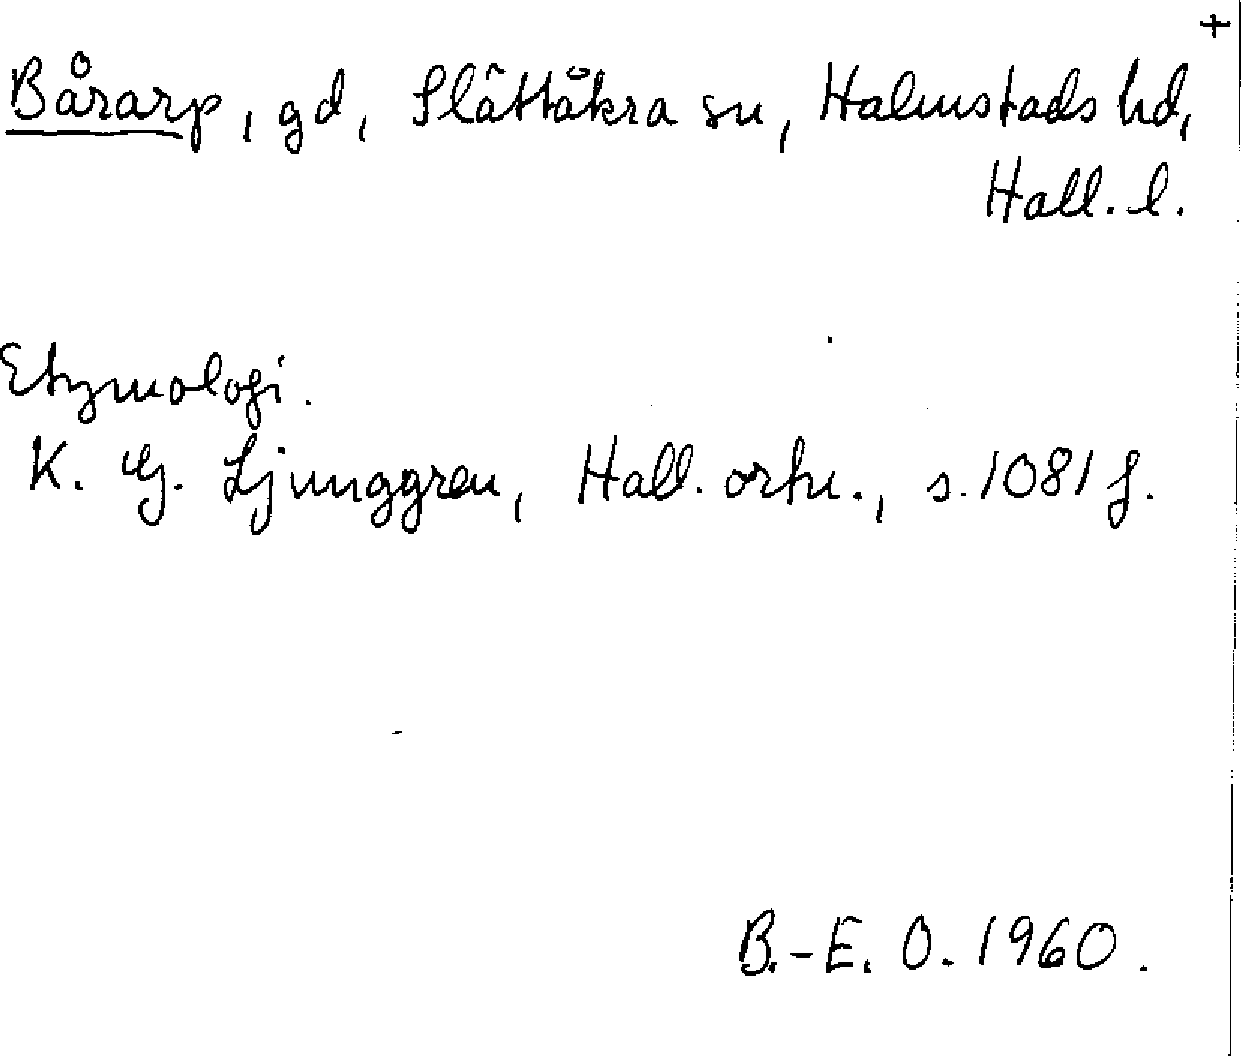 +
Bårarp, gd, Slättåkra sn, Halmstads hd,
Hall. l.
Etymologi.
K. G. Ljunggren, Hall. ortn., s. 1081 f.
B.-E. O. 1960.